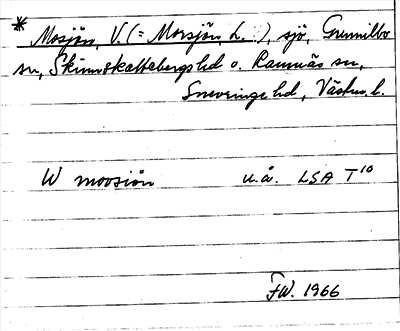 * Mosjön, V. (= Morsjön, L.), sjö, Gunnilbo
sn, Skinnskattebergs hd o. Ramnäs sn,
Snevringe hd, Västm. l.
W moosiön u.å. LSA T 10
FW. 1966